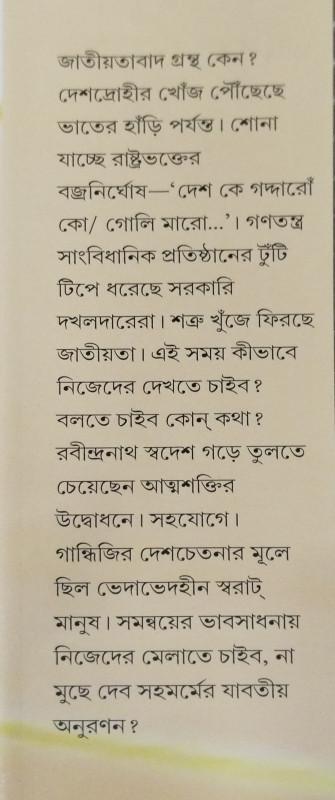 জাতীয়তাবাদ গ্রন্থ কেন?
দেশদ্রোহীর খোঁজ পৌঁছেছে
ভাতের হাঁড়ি পর্যন্ত। শোনা
যাচ্ছে রাষ্ট্রভক্তের
বজ্রনির্ঘোষ—‘দেশ কে গদ্দারোঁ
কো/ গোলি মারো...’। গণতন্ত্র
সাংবিধানিক প্রতিষ্ঠানের টুঁটি
টিপে ধরেছে সরকারি
দখলদারেরা। শত্রু খুঁজে ফিরছে
জাতীয়তা। এই সময় কীভাবে
নিজেদের দেখতে চাইব?
বলতে চাইব কোন্ কথা?
রবীন্দ্রনাথ স্বদেশ গড়ে তুলতে
চেয়েছেন আত্মশক্তির
উদ্বোধনে। সহযোগে।
গান্ধিজির দেশচেতনার মূলে
ছিল ভেদাভেদহীন স্বরাট্
মানুষ। সমন্বয়ের ভাবসাধনায়
নিজেদের মেলাতে চাইব, না
মুছে দেব সহমর্মের যাবতীয়
অনুরণন?